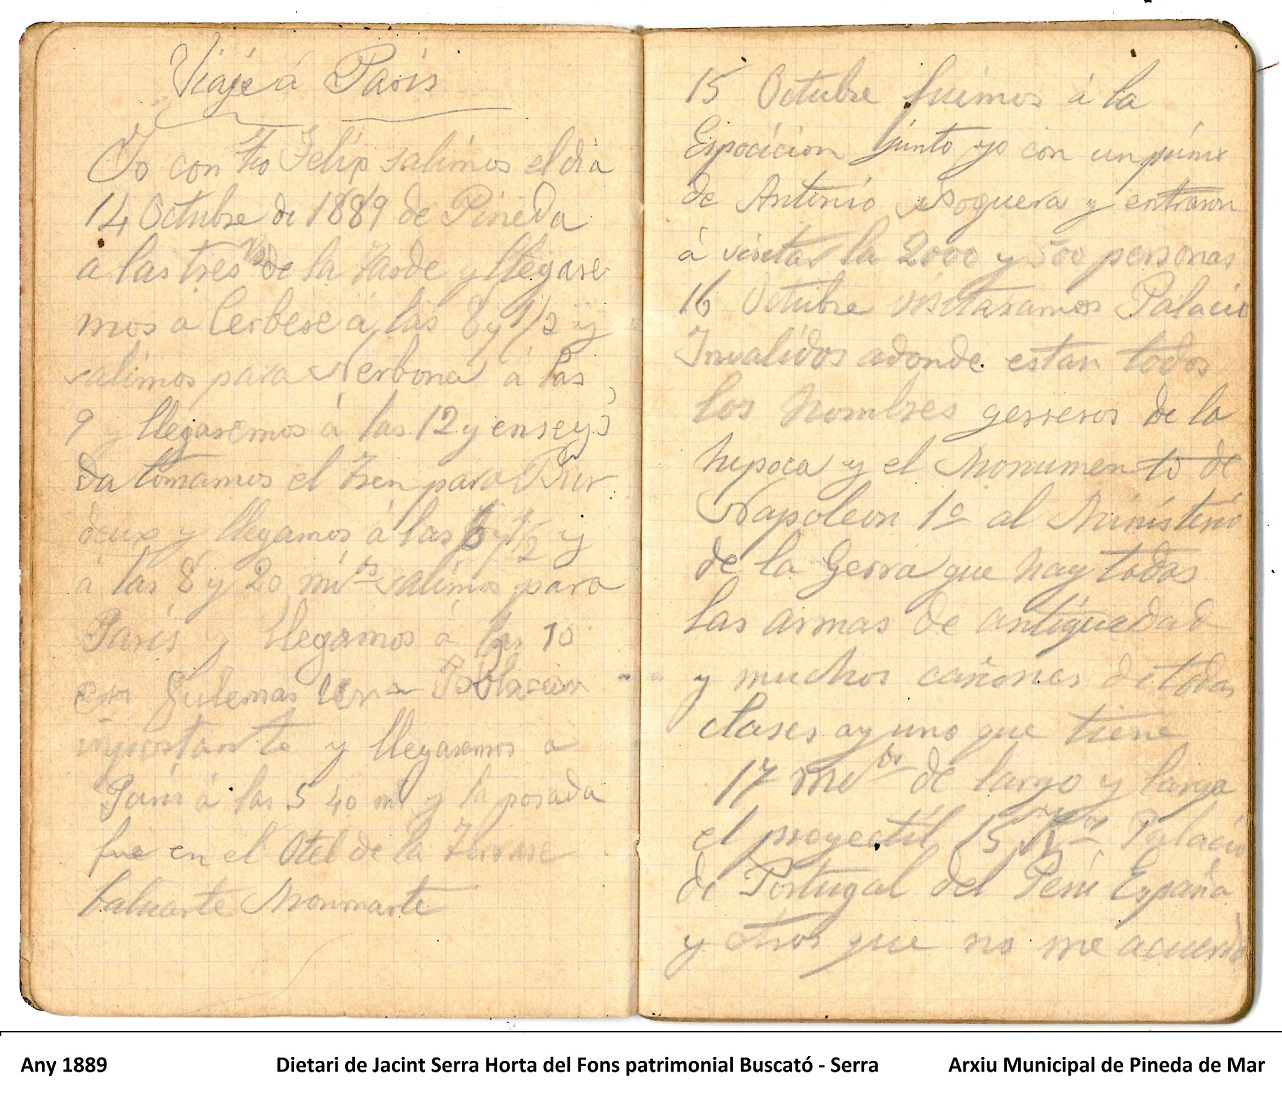 Viaje á Paris
Yo con tio Felip salimos el dia
14 Octubre de 1889 de Pineda
a las tres de la tarde y llegare
mos a Cerbere a las 8 y 1/2 y
salimos para Nerbona á las
9 y llegaremos á las 12 y enseys
da tomamos el tren para Bur
deux y llegamos á las 6 y 1/2 y
á las 8 y 20 mi ts salimos para
Paris y llegamos á las 10
en una Poblacion
importante y llegaremos a
Paris á las 5 40 m y la posada
fue en el Otel de la Terrase
baluarte Monmarte
15 Octubre fuimos á la
Esposicion junto yo con un primo
de Antonio Noguera y entraron
á visitar la 2000 y 500 personas
16 Octubre visitaramos Palacio
Invalidos adonde estan todos
los hombres gerreros de la
hepoca y el Monumento de
Napoleon 1º al Ministerio
de la Gerra que hay todas
las armas de antiguedad
y muchos cañones de todas
clases ay uno que tiene
17 me tros de largo y larga
el proyectil 15 K os Palacio
de Portugal del Perú España
y otros que no me acuerdo
Any 1889 Dietari de Jacint Serra Horta del Fons patrimonial Buscató - Serra Arxiu Municipal de Pineda de Mar